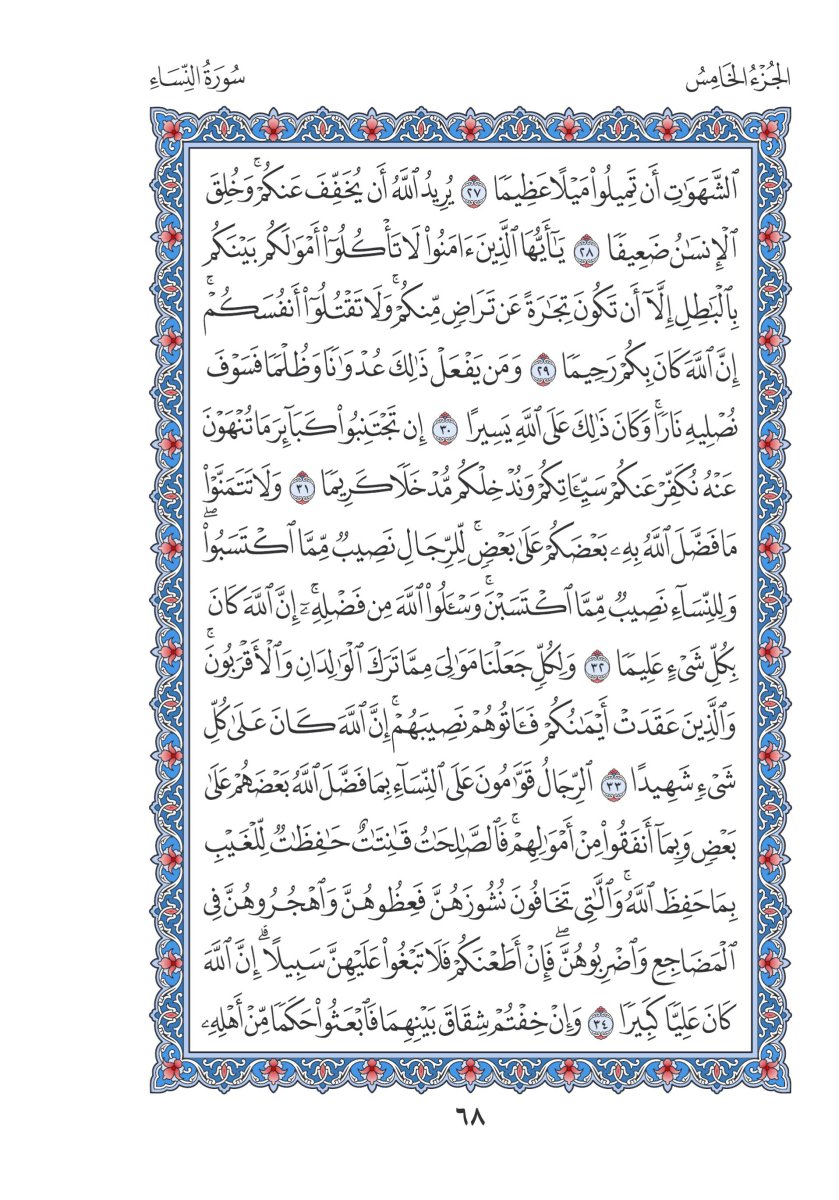 الجُزْءُ الخَامِسُ
سُورَةُ النِّسَاءِ
ٱلشَّهَوَٰتِ أَن تَمِيلُوا۟ مَيْلًا عَظِيمًا ٢٧ يُرِيدُ ٱللَّهُ أَن يُخَفِّفَ عَنكُمْۚ وَخُلِقَ
ٱلْإِنسَٰنُ ضَعِيفًا ٢٨ يَٰٓأَيُّهَا ٱلَّذِينَ ءَامَنُوا۟ لَا تَأْكُلُوٓا۟ أَمْوَٰلَكُم بَيْنَكُم
بِٱلْبَٰطِلِ إِلَّآ أَن تَكُونَ تِجَٰرَةً عَن تَرَاضٍ مِّنكُمْۚ وَلَا تَقْتُلُوٓا۟ أَنفُسَكُمْۚ
إِنَّ ٱللَّهَ كَانَ بِكُمْ رَحِيمًا ٢٩ وَمَن يَفْعَلْ ذَٰلِكَ عُدْوَٰنًا وَظُلْمًا فَسَوْفَ
نُصْلِيهِ نَارًاۚ وَكَانَ ذَٰلِكَ عَلَى ٱللَّهِ يَسِيرًا ٣٠ إِن تَجْتَنِبُوا۟ كَبَآئِرَ مَا تُنْهَوْنَ
عَنْهُ نُكَفِّرْ عَنكُمْ سَيِّـَٔاتِكُمْ وَنُدْخِلْكُم مُّدْخَلًا كَرِيمًا ٣١ وَلَا تَتَمَنَّوْا۟
مَا فَضَّلَ ٱللَّهُ بِهِۦ بَعْضَكُمْ عَلَىٰ بَعْضٍۚ لِّلرِّجَالِ نَصِيبٌ مِّمَّا ٱكْتَسَبُوا۟ۖ
وَلِلنِّسَآءِ نَصِيبٌ مِّمَّا ٱكْتَسَبْنَۚ وَسْـَٔلُوا۟ ٱللَّهَ مِن فَضْلِهِۦٓۚ إِنَّ ٱللَّهَ كَانَ
بِكُلِّ شَىْءٍ عَلِيمًا ٣٢ وَلِكُلٍّ جَعَلْنَا مَوَٰلِىَ مِمَّا تَرَكَ ٱلْوَٰلِدَانِ وَٱلْأَقْرَبُونَۚ
وَٱلَّذِينَ عَقَدَتْ أَيْمَٰنُكُمْ فَـَٔاتُوهُمْ نَصِيبَهُمْۚ إِنَّ ٱللَّهَ كَانَ عَلَىٰ كُلِّ
شَىْءٍ شَهِيدًا ٣٣ ٱلرِّجَالُ قَوَّٰمُونَ عَلَى ٱلنِّسَآءِ بِمَا فَضَّلَ ٱللَّهُ بَعْضَهُمْ عَلَىٰ
بَعْضٍ وَبِمَآ أَنفَقُوا۟ مِنْ أَمْوَٰلِهِمْۚ فَٱلصَّٰلِحَٰتُ قَٰنِتَٰتٌ حَٰفِظَٰتٌ لِّلْغَيْبِ
بِمَا حَفِظَ ٱللَّهُۚ وَٱلَّٰتِى تَخَافُونَ نُشُوزَهُنَّ فَعِظُوهُنَّ وَٱهْجُرُوهُنَّ فِى
ٱلْمَضَاجِعِ وَٱضْرِبُوهُنَّۖ فَإِنْ أَطَعْنَكُمْ فَلَا تَبْغُوا۟ عَلَيْهِنَّ سَبِيلًاۗ إِنَّ ٱللَّهَ
كَانَ عَلِيًّا كَبِيرًا ٣٤ وَإِنْ خِفْتُمْ شِقَاقَ بَيْنِهِمَا فَٱبْعَثُوا۟ حَكَمًا مِّنْ أَهْلِهِۦ
٦٨